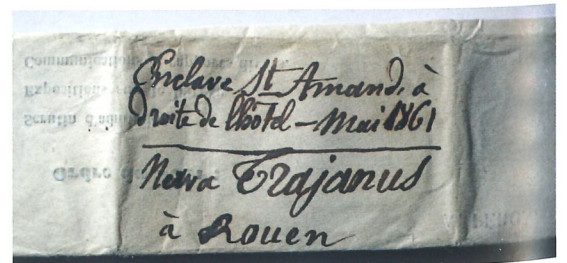 Enclave St Amand, à
droite de lhôtel – Mai 1861
Nerva Trajanus
à Rouen